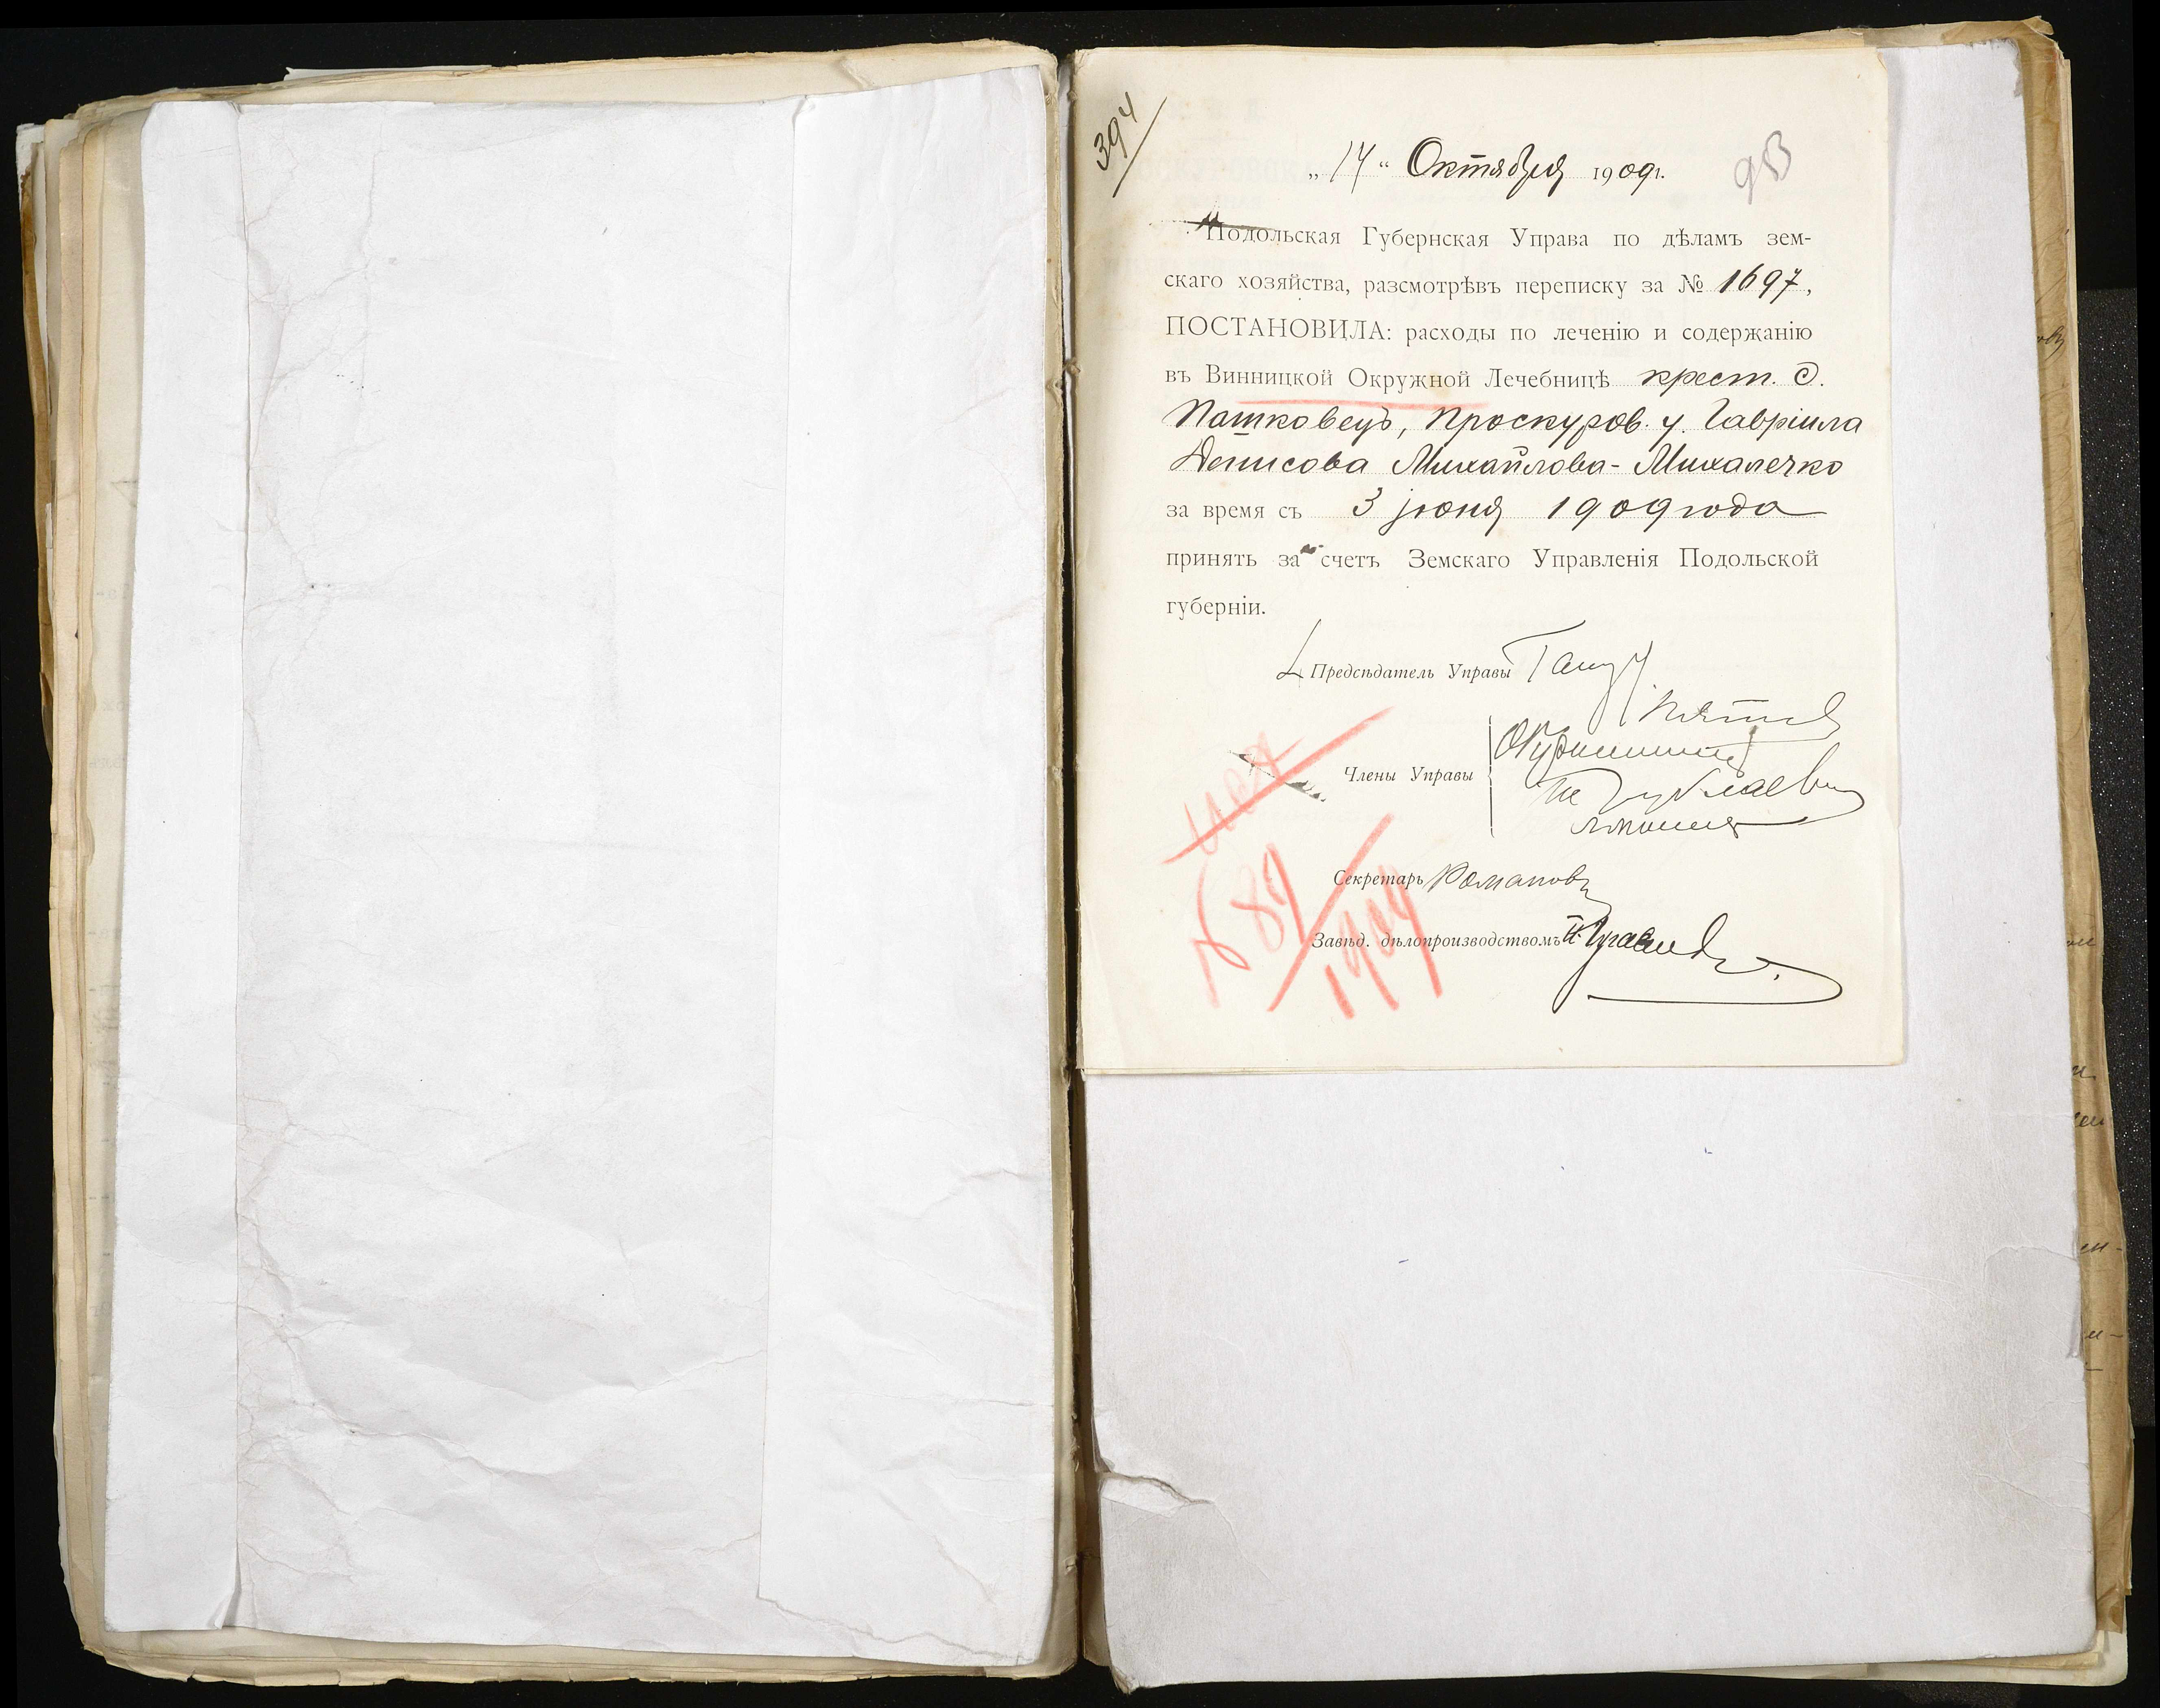 394
„14“ Октября 1909 г.
93
Подольская Губернская Управа по дѣламъ зем-
скаго хозяйства, разсмотрѣвъ переписку за № 1697,
ПОСТАНОВИЛА: расходы по леченію и содержанію
въ Винницкой Окружной Лечебницѣ крест. с.
Пашковецъ, Проскуров. у. Гавріила
Денисова Михайлова-Михалечко
за время съ 3 іюня 1909 года
принять за счетъ Земскаго Управленія Подольской
губерніи.
Предсѣдатель Управы
Члены Управы
Секретарь Романовъ
Завѣд. дѣлопроизводствомъ
89/1909